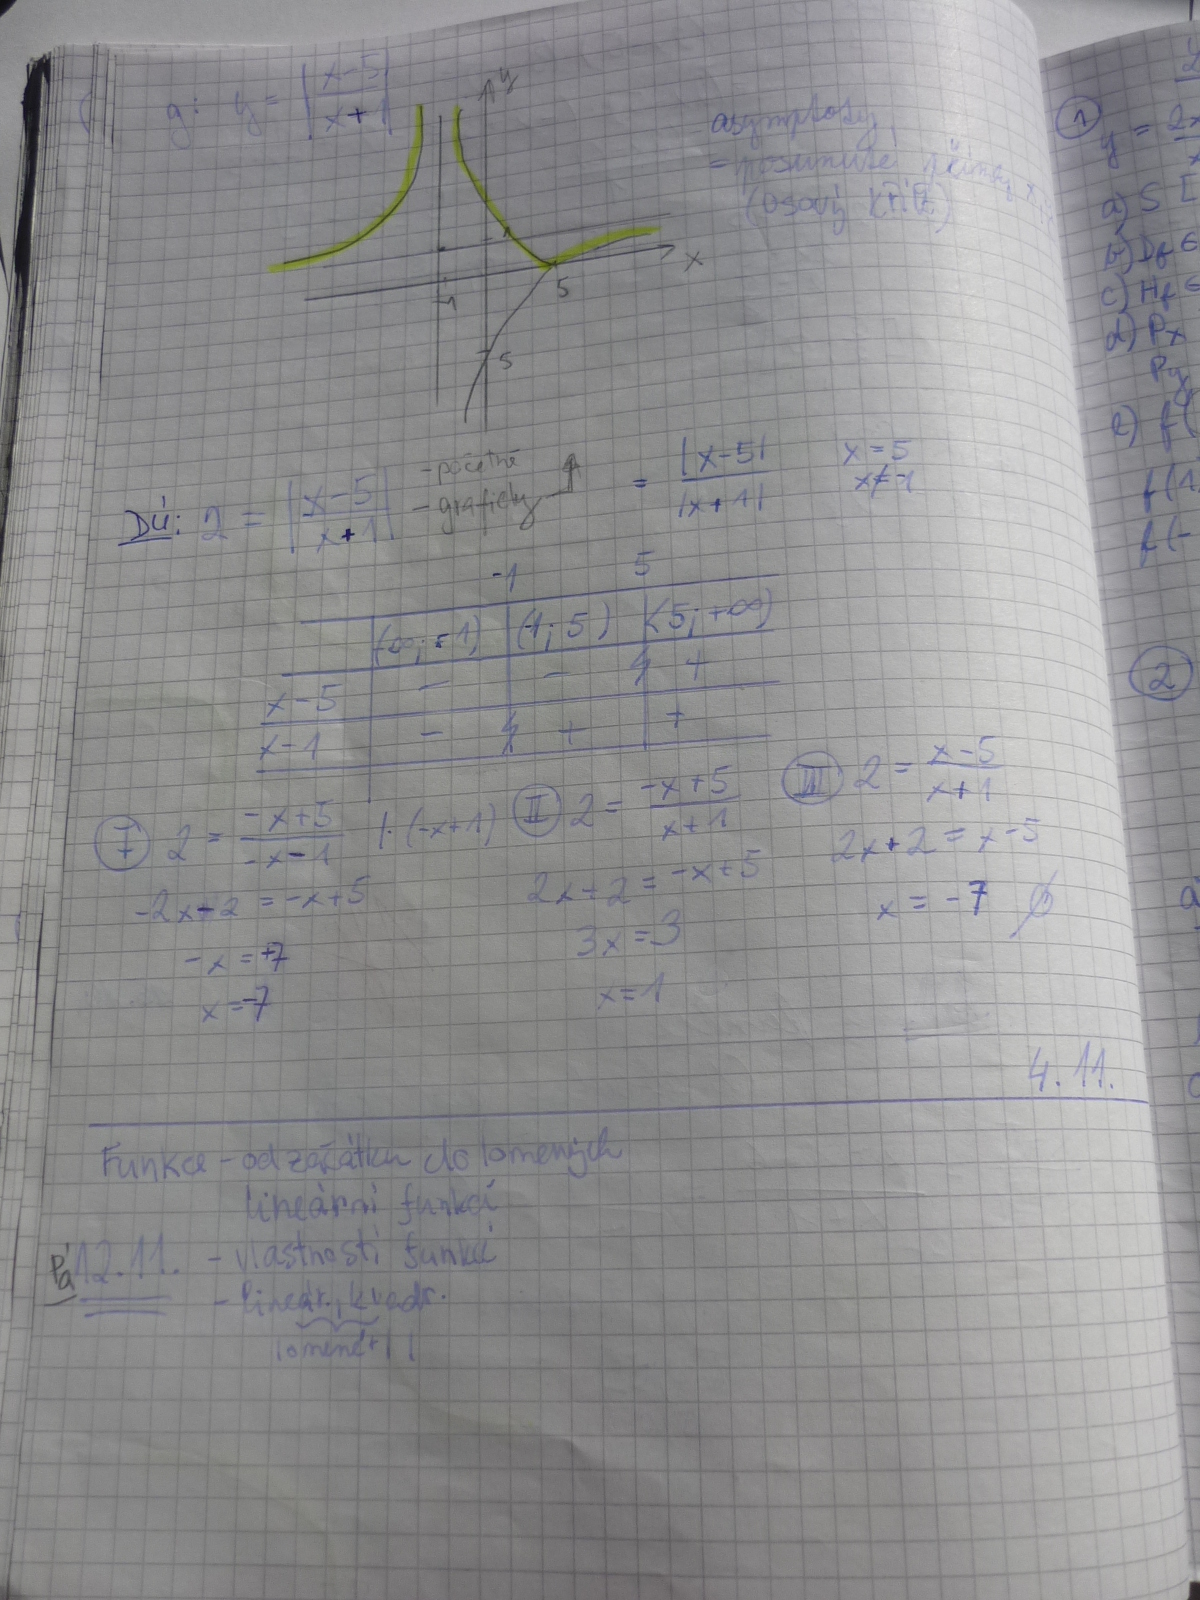 g: y = |x-5 / x+1|
y
asymptoty
- posunuté
(osový kříž)
1
x
-1
5
5
DÚ: 2 = |x-5 / x+1| - početně
- graficky
= |x-5| / |x+1|
x = 5
x ≠ -1
-1 5
(-∞; -1) (-1; 5) (5; +∞)
x-5 - - +
x-1 - + +
I 2 = -x+5 / -x-1 |· (-x+1)
-2x-2 = -x+5
-x = +7
x = -7
II 2 = -x+5 / x+1
2x+2 = -x+5
3x = 3
x = 1
III 2 = x-5 / x+1
2x+2 = x-5
x = -7 ∅
4.11.
Funkce - od začátku do lomených
lineární funkcí
Pá 12.11. - vlastnosti funkcí
- lineár., kvadr.
1
y = 2x
a) S [
b) Df
c) Hf
d) Px
Py
e) f(
f(1
f(-
2